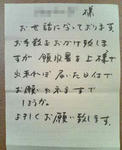 様
お世話になっております。
お手数をおかけ致しま
すが領収書を上様で
出来れば届いた日付で
お願い出来ますで
しょうか。
よろしくお願い致します。